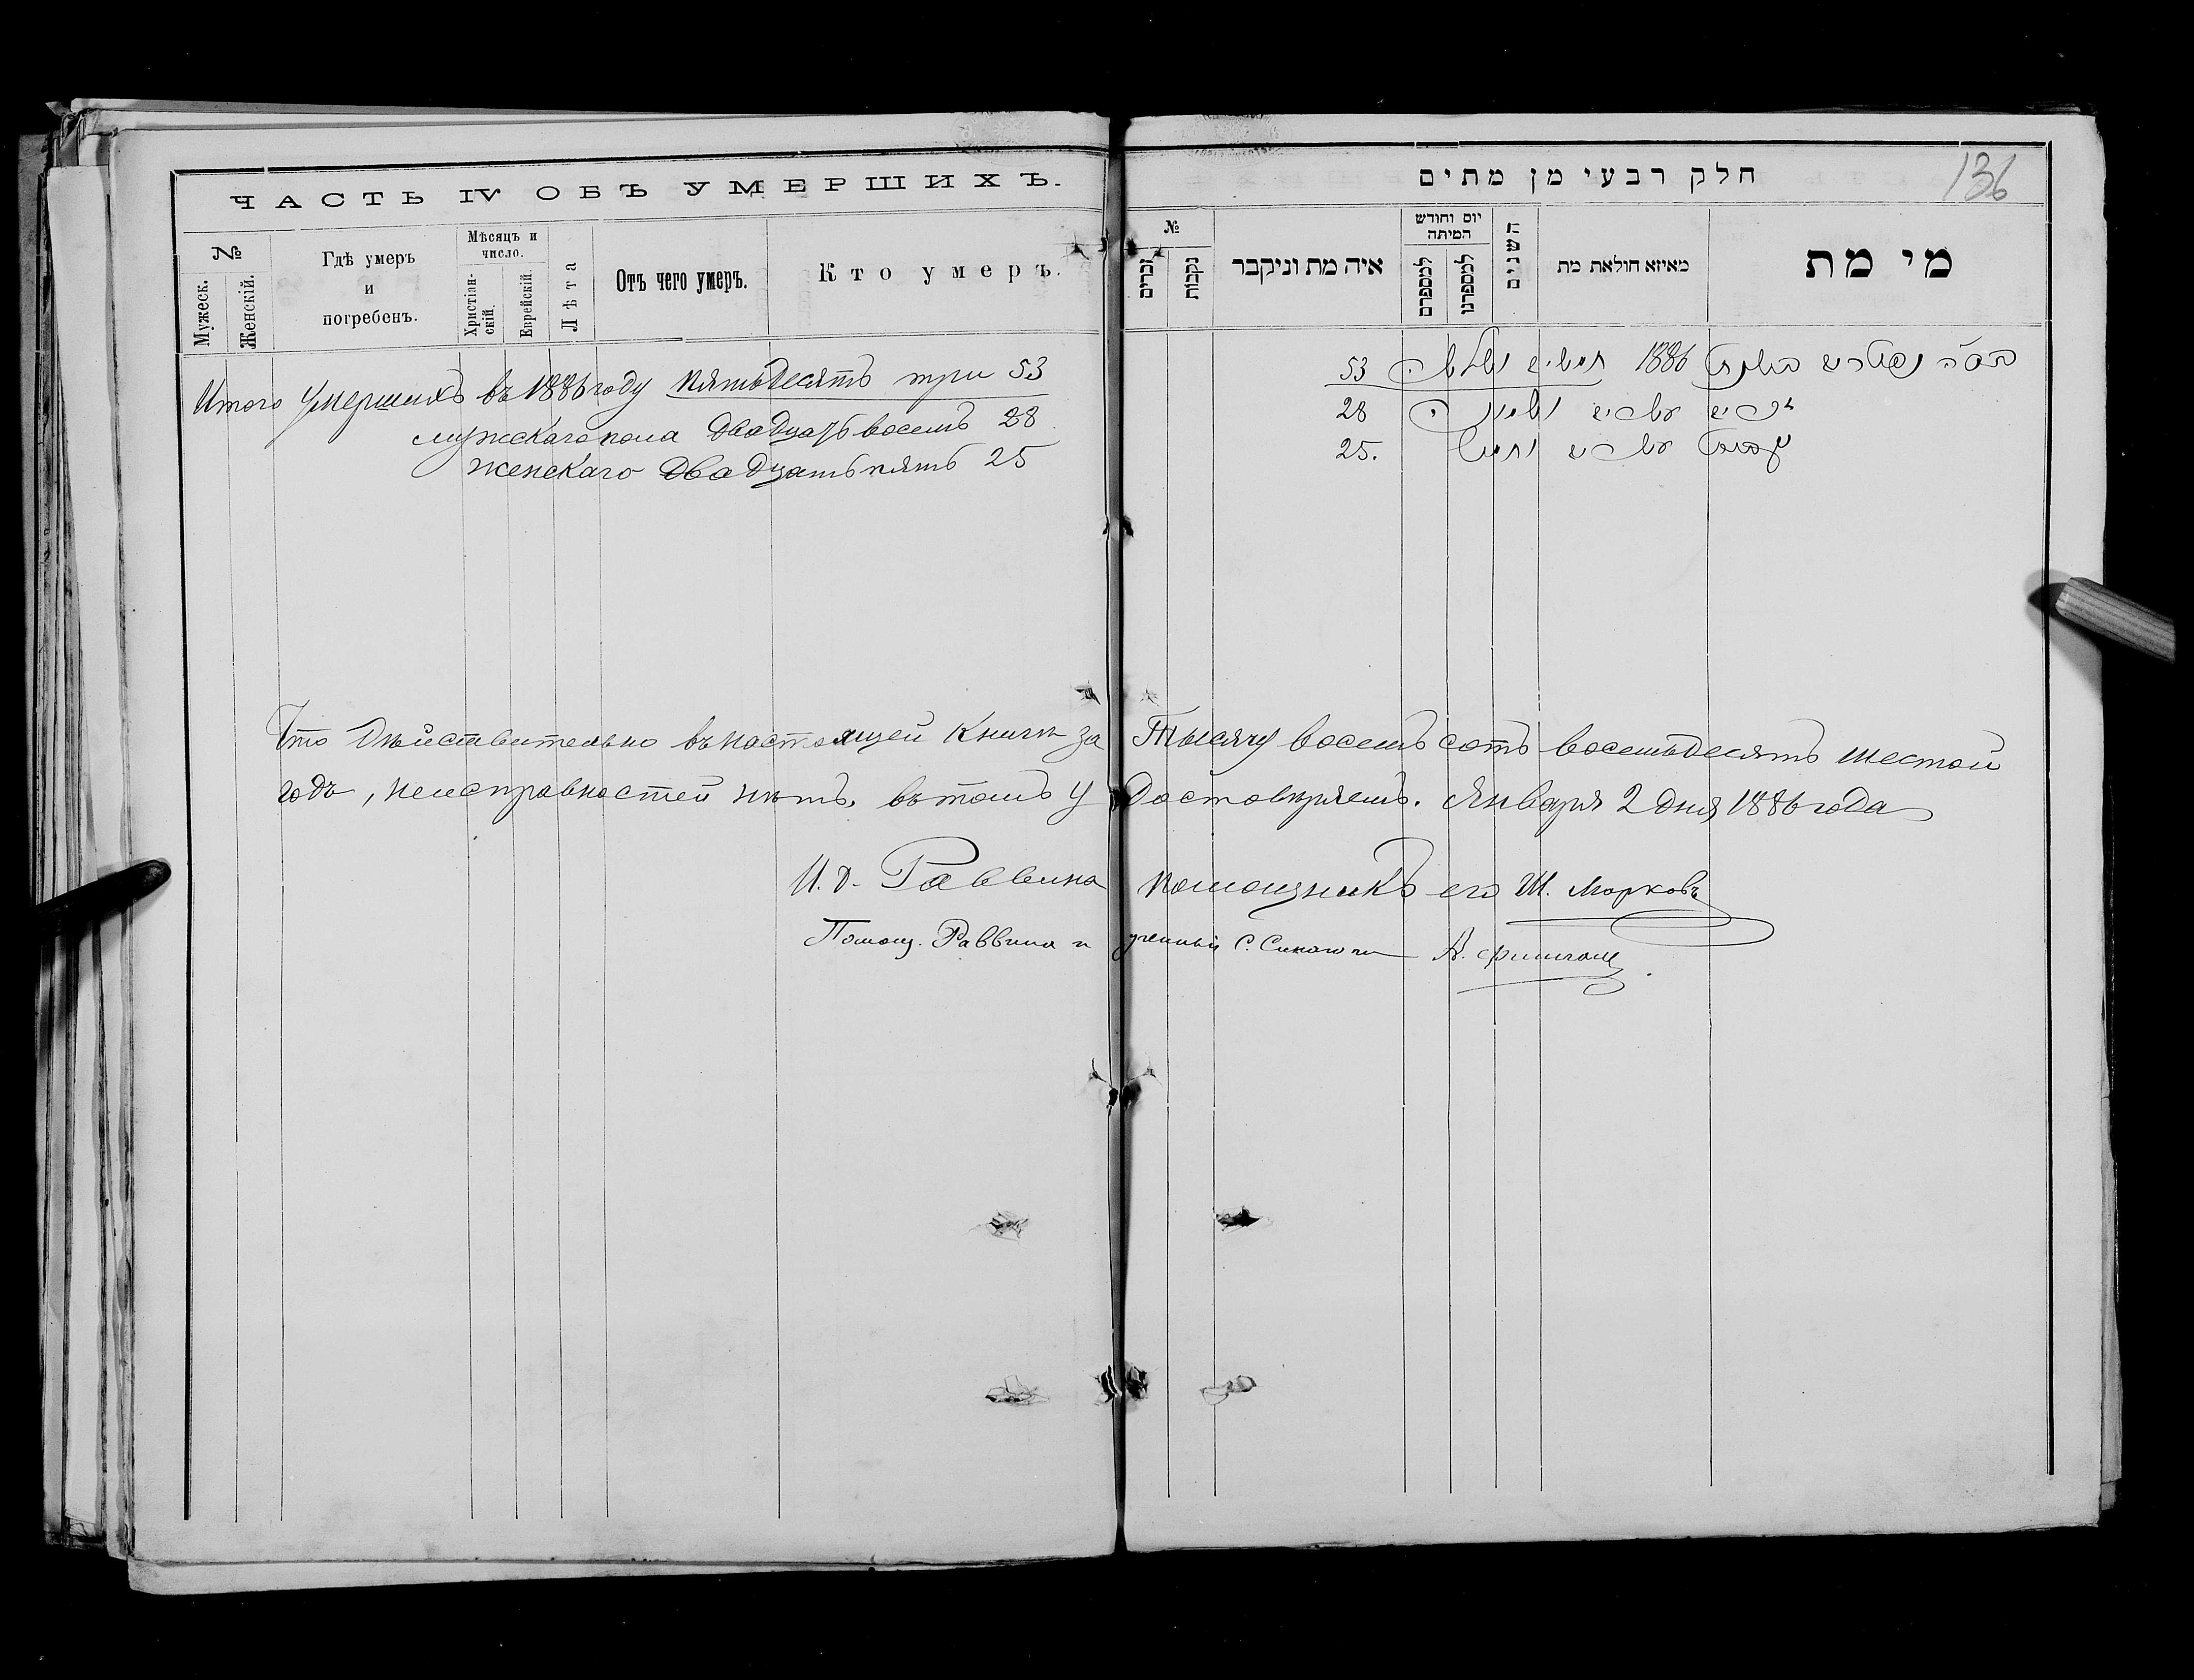 ЧАСТЬ IV ОБЪ УМЕРШИХЪ.
№
Мужеск.
Женскій.
Гдѣ умеръ
и
погребенъ.
Мѣсяцъ и
число.
Христіан-
скій.
Еврейскій.
Лѣта
Отъ чего умеръ.
Кто умеръ.
Итого умершихъ въ 1886 году пятьдесятъ три 53
мужскаго пола двадцать восемь 28
женскаго двадцать пять 25
חלק רבעי מן מתים
136
№
זכרים
נקבות
איה מת וניקבר
יום וחודש
המיתה
למספרם
למספרנו
השנים
מאיזא חולאת מת
מי מת
1886 53
28
25.
Что дѣйствительно въ настоящей книги за Тысячу восемьсотъ восемьдесятъ шестой
годъ, неисправностей нѣтъ, въ томъ удостовѣряемъ. Января 2 дня 1886 года
И. д. Раввина помощникъ его Ш. Марковъ
Помощ. Раввина и ученный С. Синагоги А.